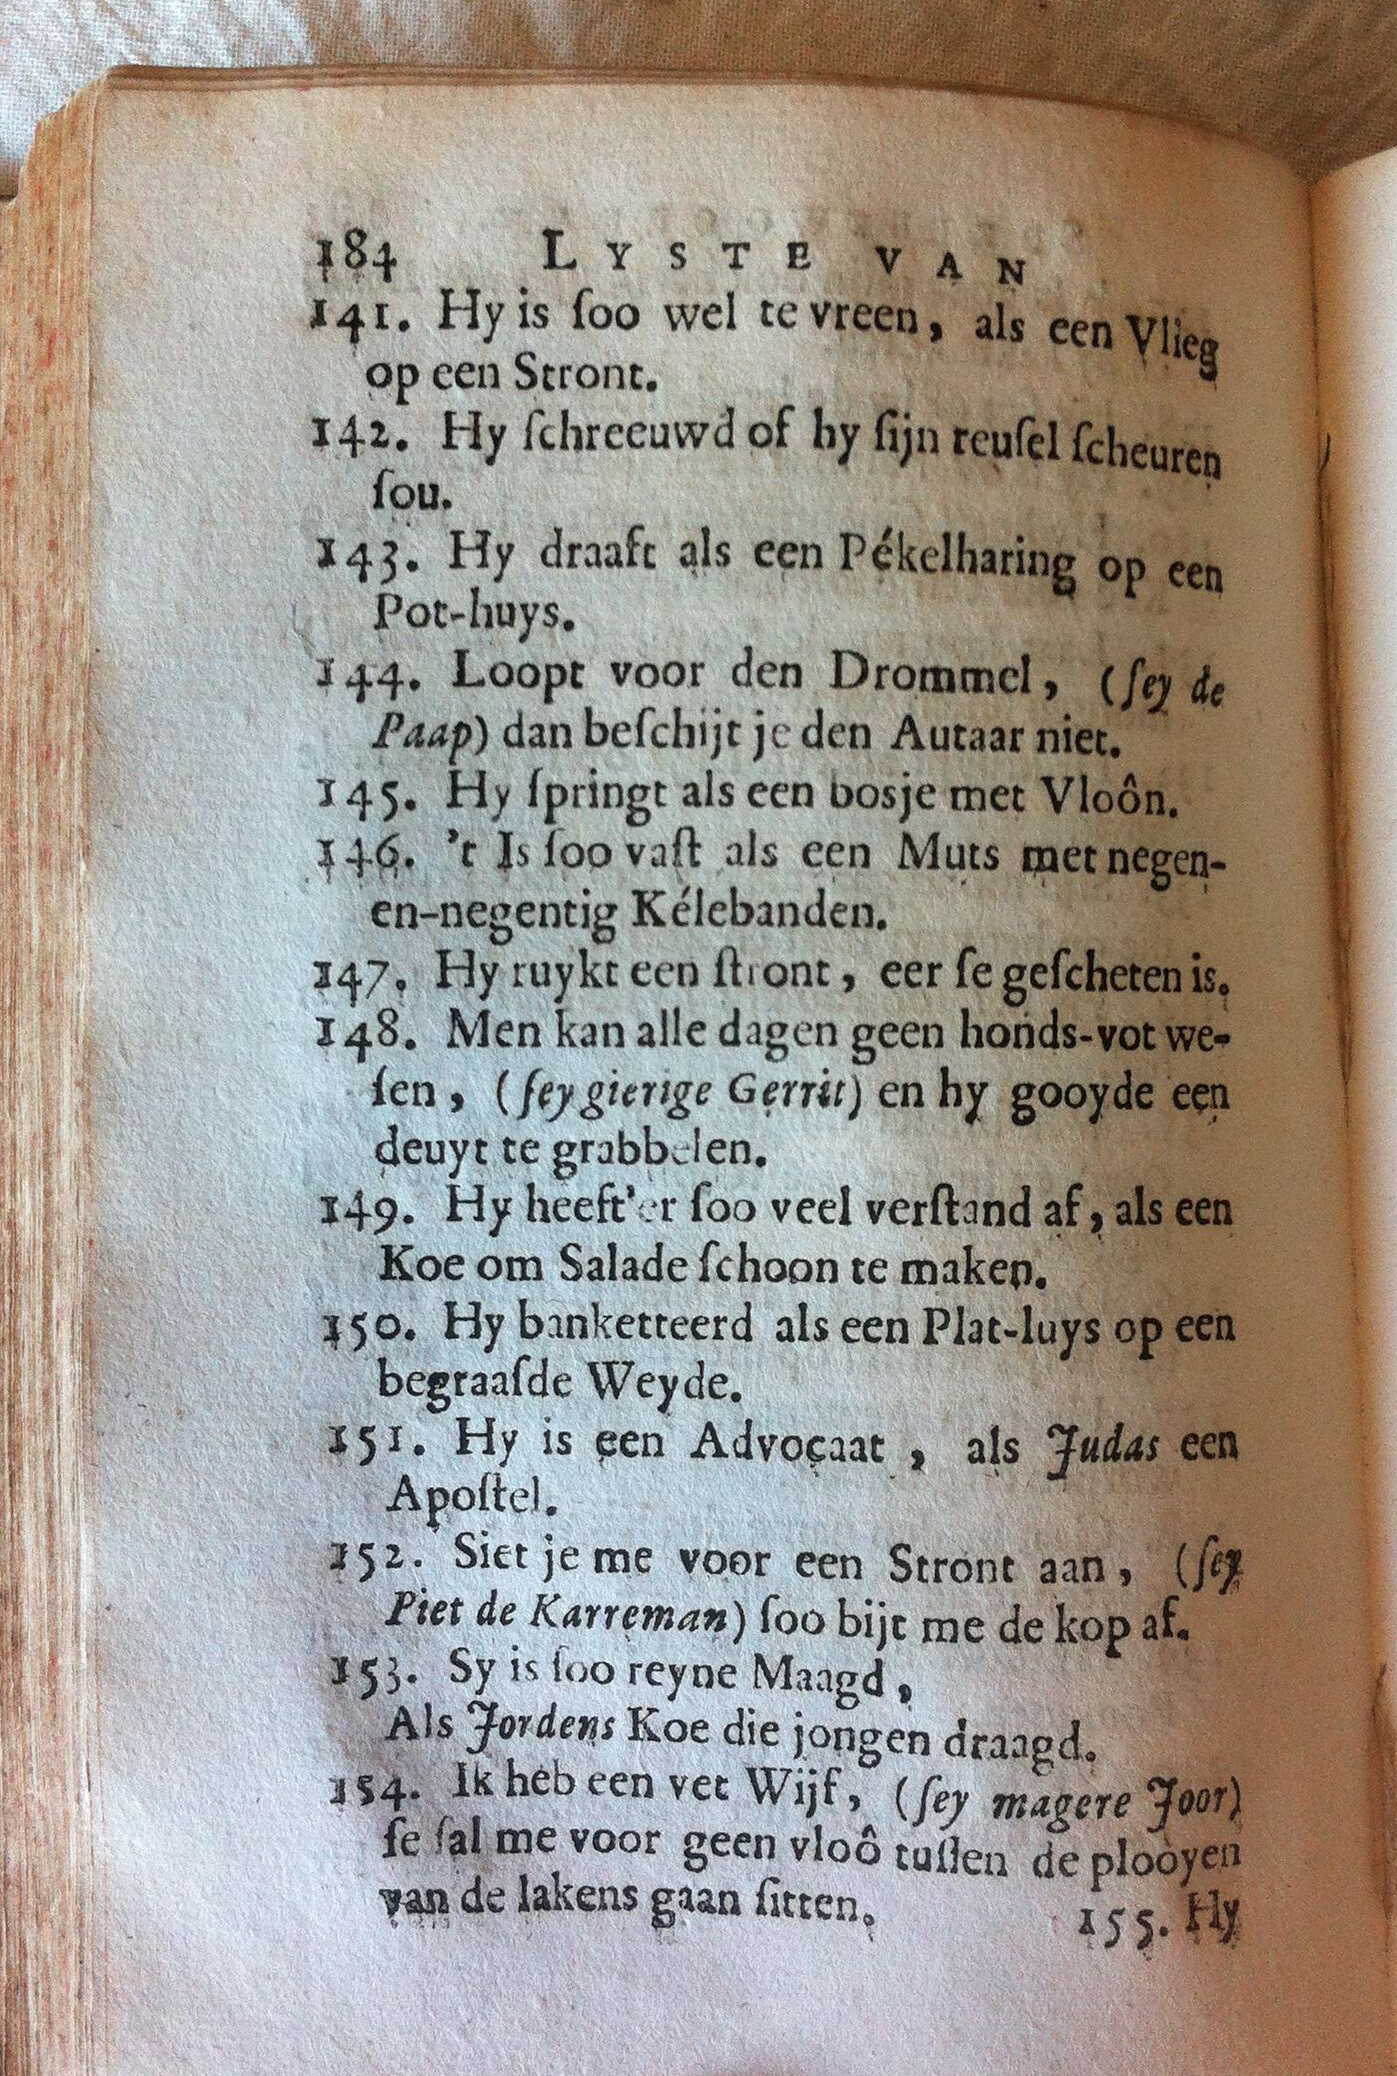 184 LYSTE VAN
141. Hy is ſoo wel te vreen, als een Vlieg
op een Stront.
142. Hy ſchreeuwd of hy ſijn reuſel ſcheuren
ſou.
143. Hy draaft als een Pékelharing op een
Pot-huys.
144. Loopt voor den Drommel, (ſey de
Paap) dan beſchijt je den Autaar niet.
145. Hy ſpringt als een bosje met Vloôn.
146. 't Is ſoo vaſt als een Muts met negen-
en-negentig Kélebanden.
147. Hy ruykt een ſtront, eer ſe geſcheten is.
148. Men kan alle dagen geen honds-vot we-
ſen, (ſey gierige Gerrit) en hy gooyde een
deuyt te grabbelen.
149. Hy heeft'er ſoo veel verſtand af, als een
Koe om Salade ſchoon te maken.
150. Hy banketteerd als een Plat-luys op een
begraaſde Weyde.
151. Hy is een Advocaat, als Judas een
Apoſtel.
152. Siet je me voor een Stront aan, (ſey
Piet de Karreman) ſoo bijt me de kop af.
153. Sy is ſoo reyne Maagd,
Als Jordens Koe die jongen draagd.
154. Ik heb een vet Wijf, (ſey magere Joor)
ſe ſal me voor geen vloô tuſſen de plooyen
van de lakens gaan ſitten.
155. Hy